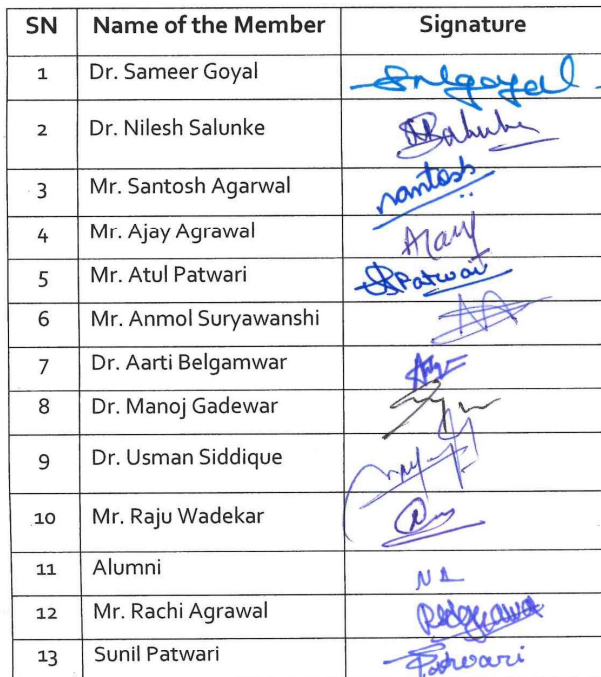 SN Name of the Member Signature
1 Dr. Sameer Goyal
2 Dr. Nilesh Salunke
3 Mr. Santosh Agarwal santosh
4 Mr. Ajay Agrawal
5 Mr. Atul Patwari
6 Mr. Anmol Suryawanshi
7 Dr. Aarti Belgamwar
8 Dr. Manoj Gadewar
9 Dr. Usman Siddique
10 Mr. Raju Wadekar
11 Alumni NA
12 Mr. Rachi Agrawal
13 Sunil Patwari Patwari